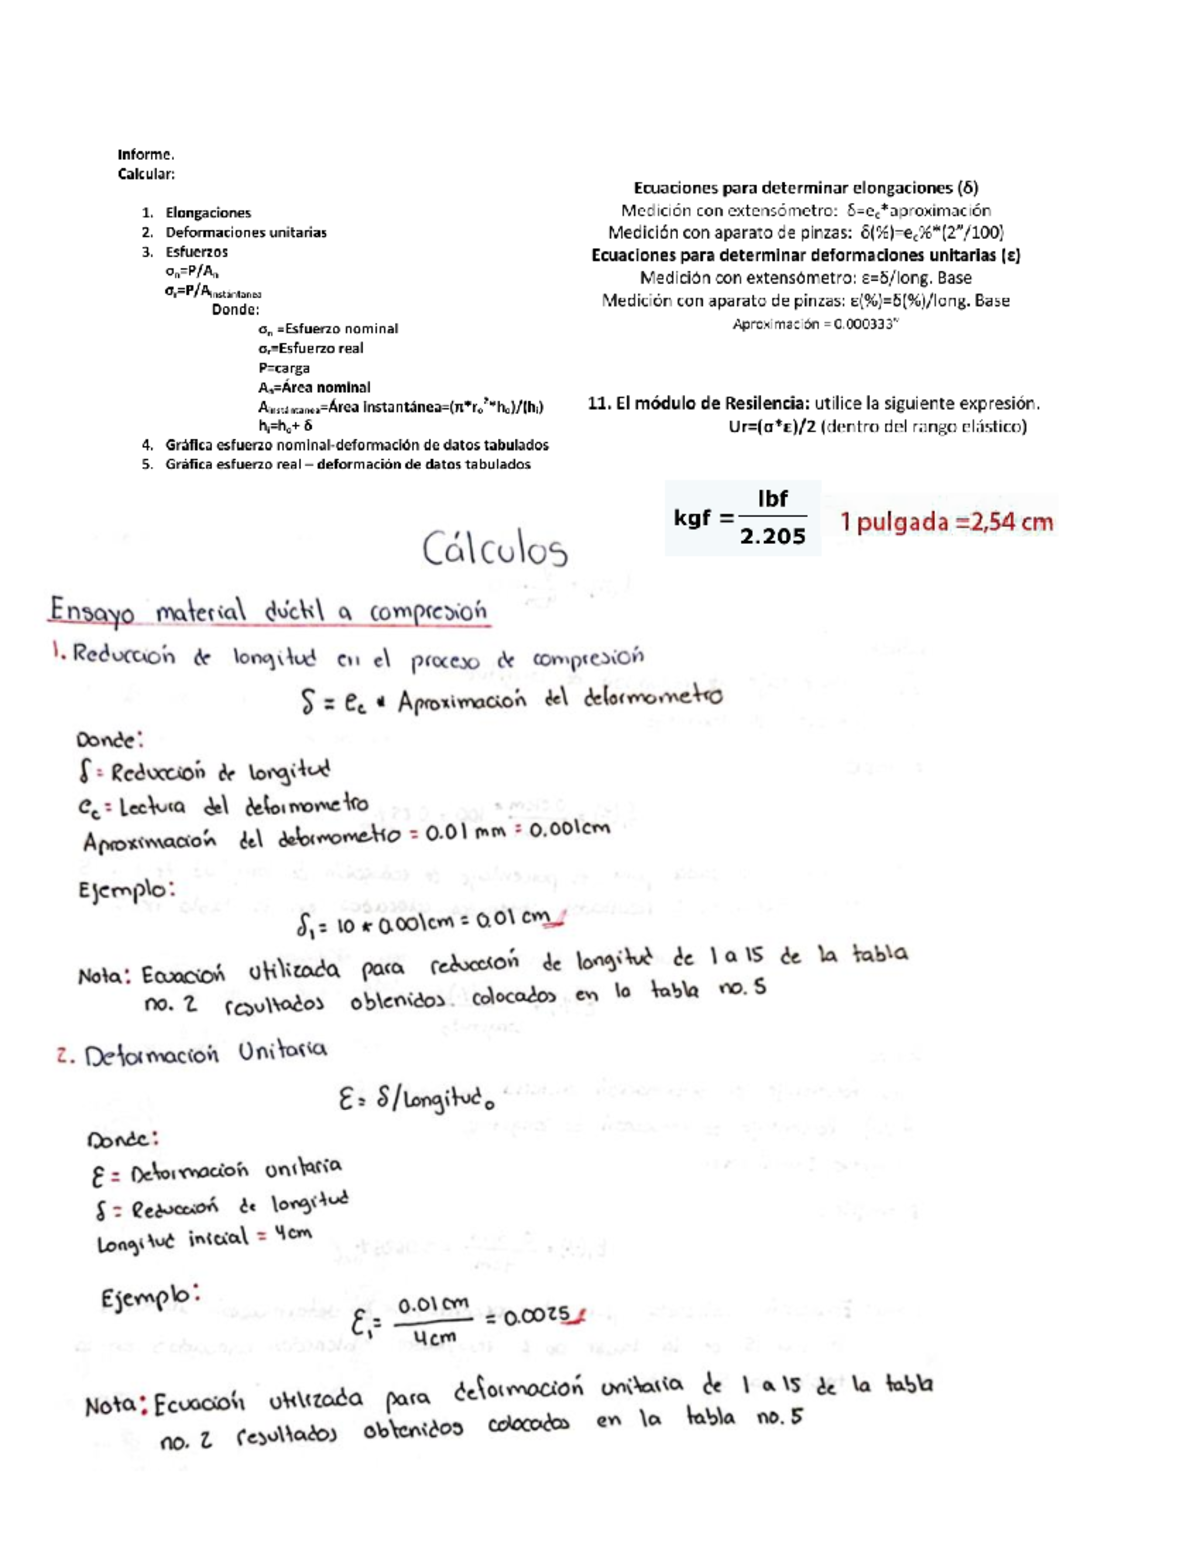 Informe.
Calcular:
1. Elongaciones
2. Deformaciones unitarias
3. Esfuerzos
σn=P/An
σr=P/Ainstantanea
Donde:
σn =Esfuerzo nominal
σr=Esfuerzo real
P=carga
An=Área nominal
Ainstantanea=Área instantánea=(π*ro²*ho)/(hi)
hi=ho+ δ
4. Gráfica esfuerzo nominal-deformación de datos tabulados
5. Gráfica esfuerzo real – deformación de datos tabulados
Ecuaciones para determinar elongaciones (δ)
Medición con extensómetro: δ=ec*aproximación
Medición con aparato de pinzas: δ(%)=ec%*(2”/100)
Ecuaciones para determinar deformaciones unitarias (ε)
Medición con extensómetro: ε=δ/long. Base
Medición con aparato de pinzas: ε(%)=δ(%)/long. Base
Aproximación = 0.000333”
11. El módulo de Resilencia: utilice la siguiente expresión.
Ur=(σ*ε)/2 (dentro del rango elástico)
kgf = lbf / 2.205
1 pulgada =2,54 cm
Cálculos
Ensayo material dúctil a compresión
1. Reducción de longitud en el proceso de compresión
δ = ec * Aproximación del deformometro
Donde:
δ = Reducción de longitud
ec = Lectura del deformometro
Aproximación del deformometro = 0.01 mm = 0.001cm
Ejemplo:
δ1 = 10 * 0.001cm = 0.01 cm
Nota: Ecuación utilizada para reducción de longitud de 1 a 15 de la tabla
no. 2 resultados obtenidos colocados en la tabla no. 5
2. Deformación Unitaria
ε = δ/Longitud₀
Donde:
ε = Deformación unitaria
δ = Reducción de longitud
Longitud inicial = 4cm
Ejemplo:
ε1 = 0.01 cm / 4cm = 0.0025
Nota: Ecuación utilizada para deformación unitaria de 1 a 15 de la tabla
no. 2 resultados obtenidos colocados en la tabla no. 5